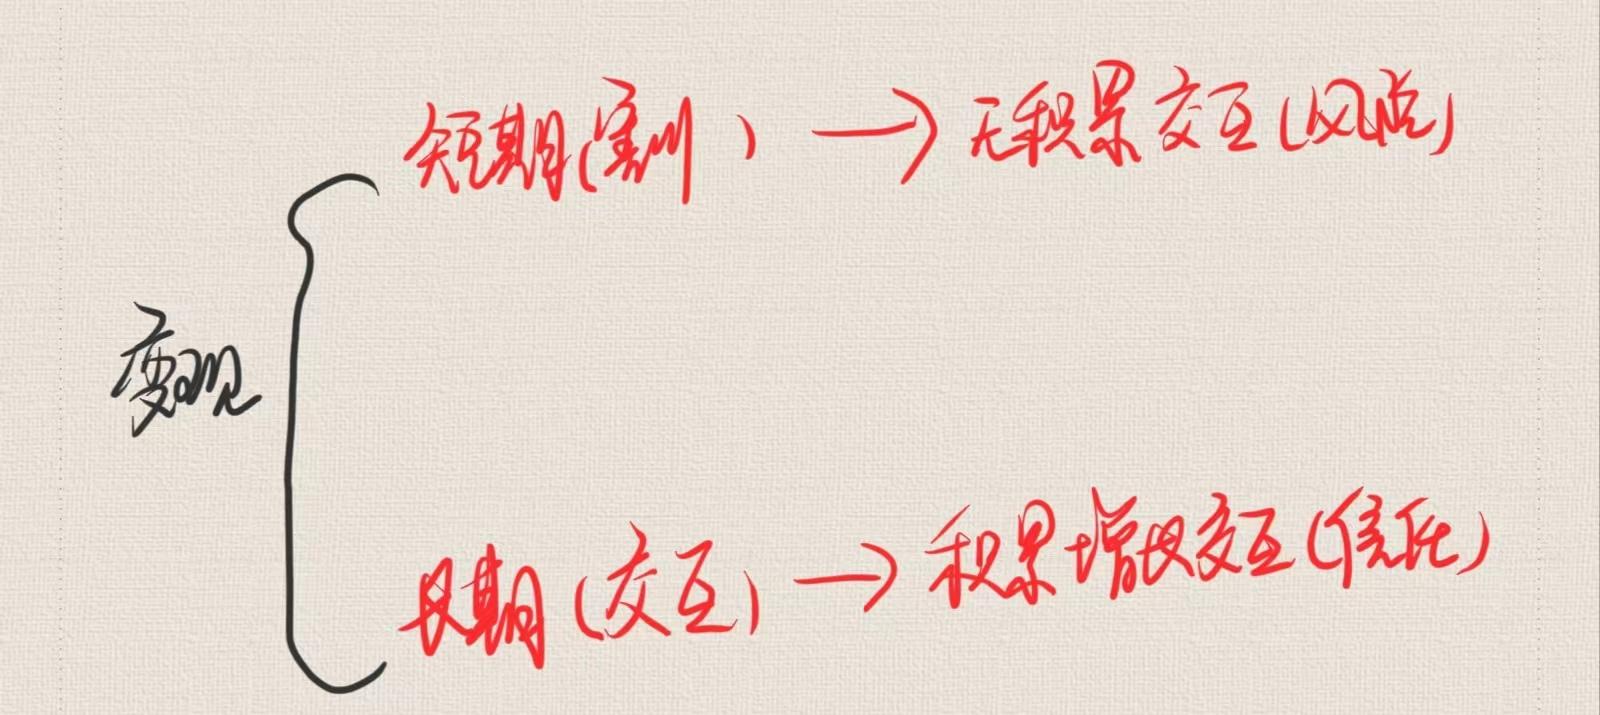 短期(割) → 无积累交互(风险)
变现
长期(交互) → 积累增长交互(信任)